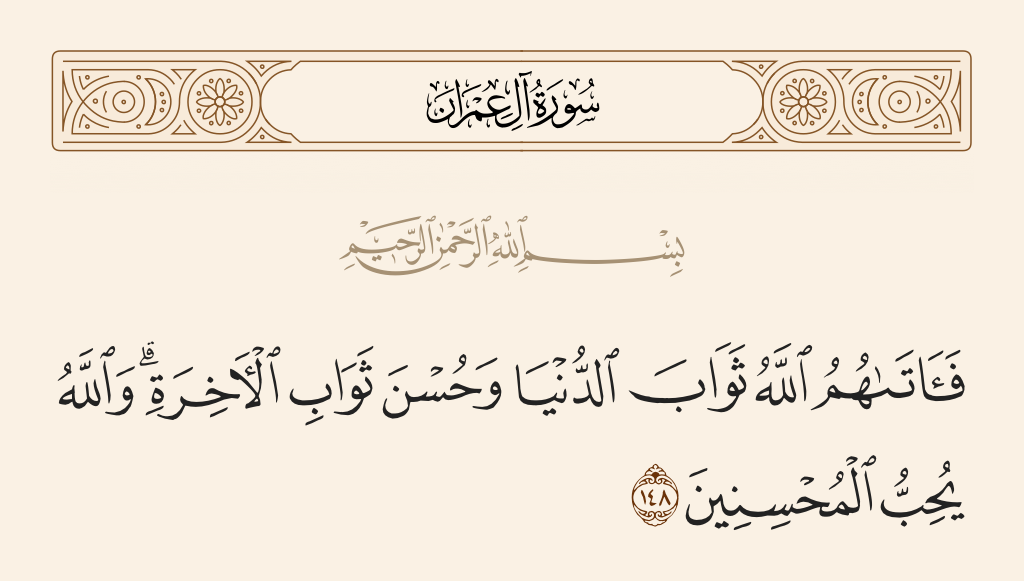 سُورَةُ آلِ عِمْرَان
بِسْمِ ٱللَّهِ ٱلرَّحْمَٰنِ ٱلرَّحِيمِ
فَـَٔاتَىٰهُمُ ٱللَّهُ ثَوَابَ ٱلدُّنْيَا وَحُسْنَ ثَوَابِ ٱلْـَٔاخِرَةِ ۗ وَٱللَّهُ
يُحِبُّ ٱلْمُحْسِنِينَ ١٤٨